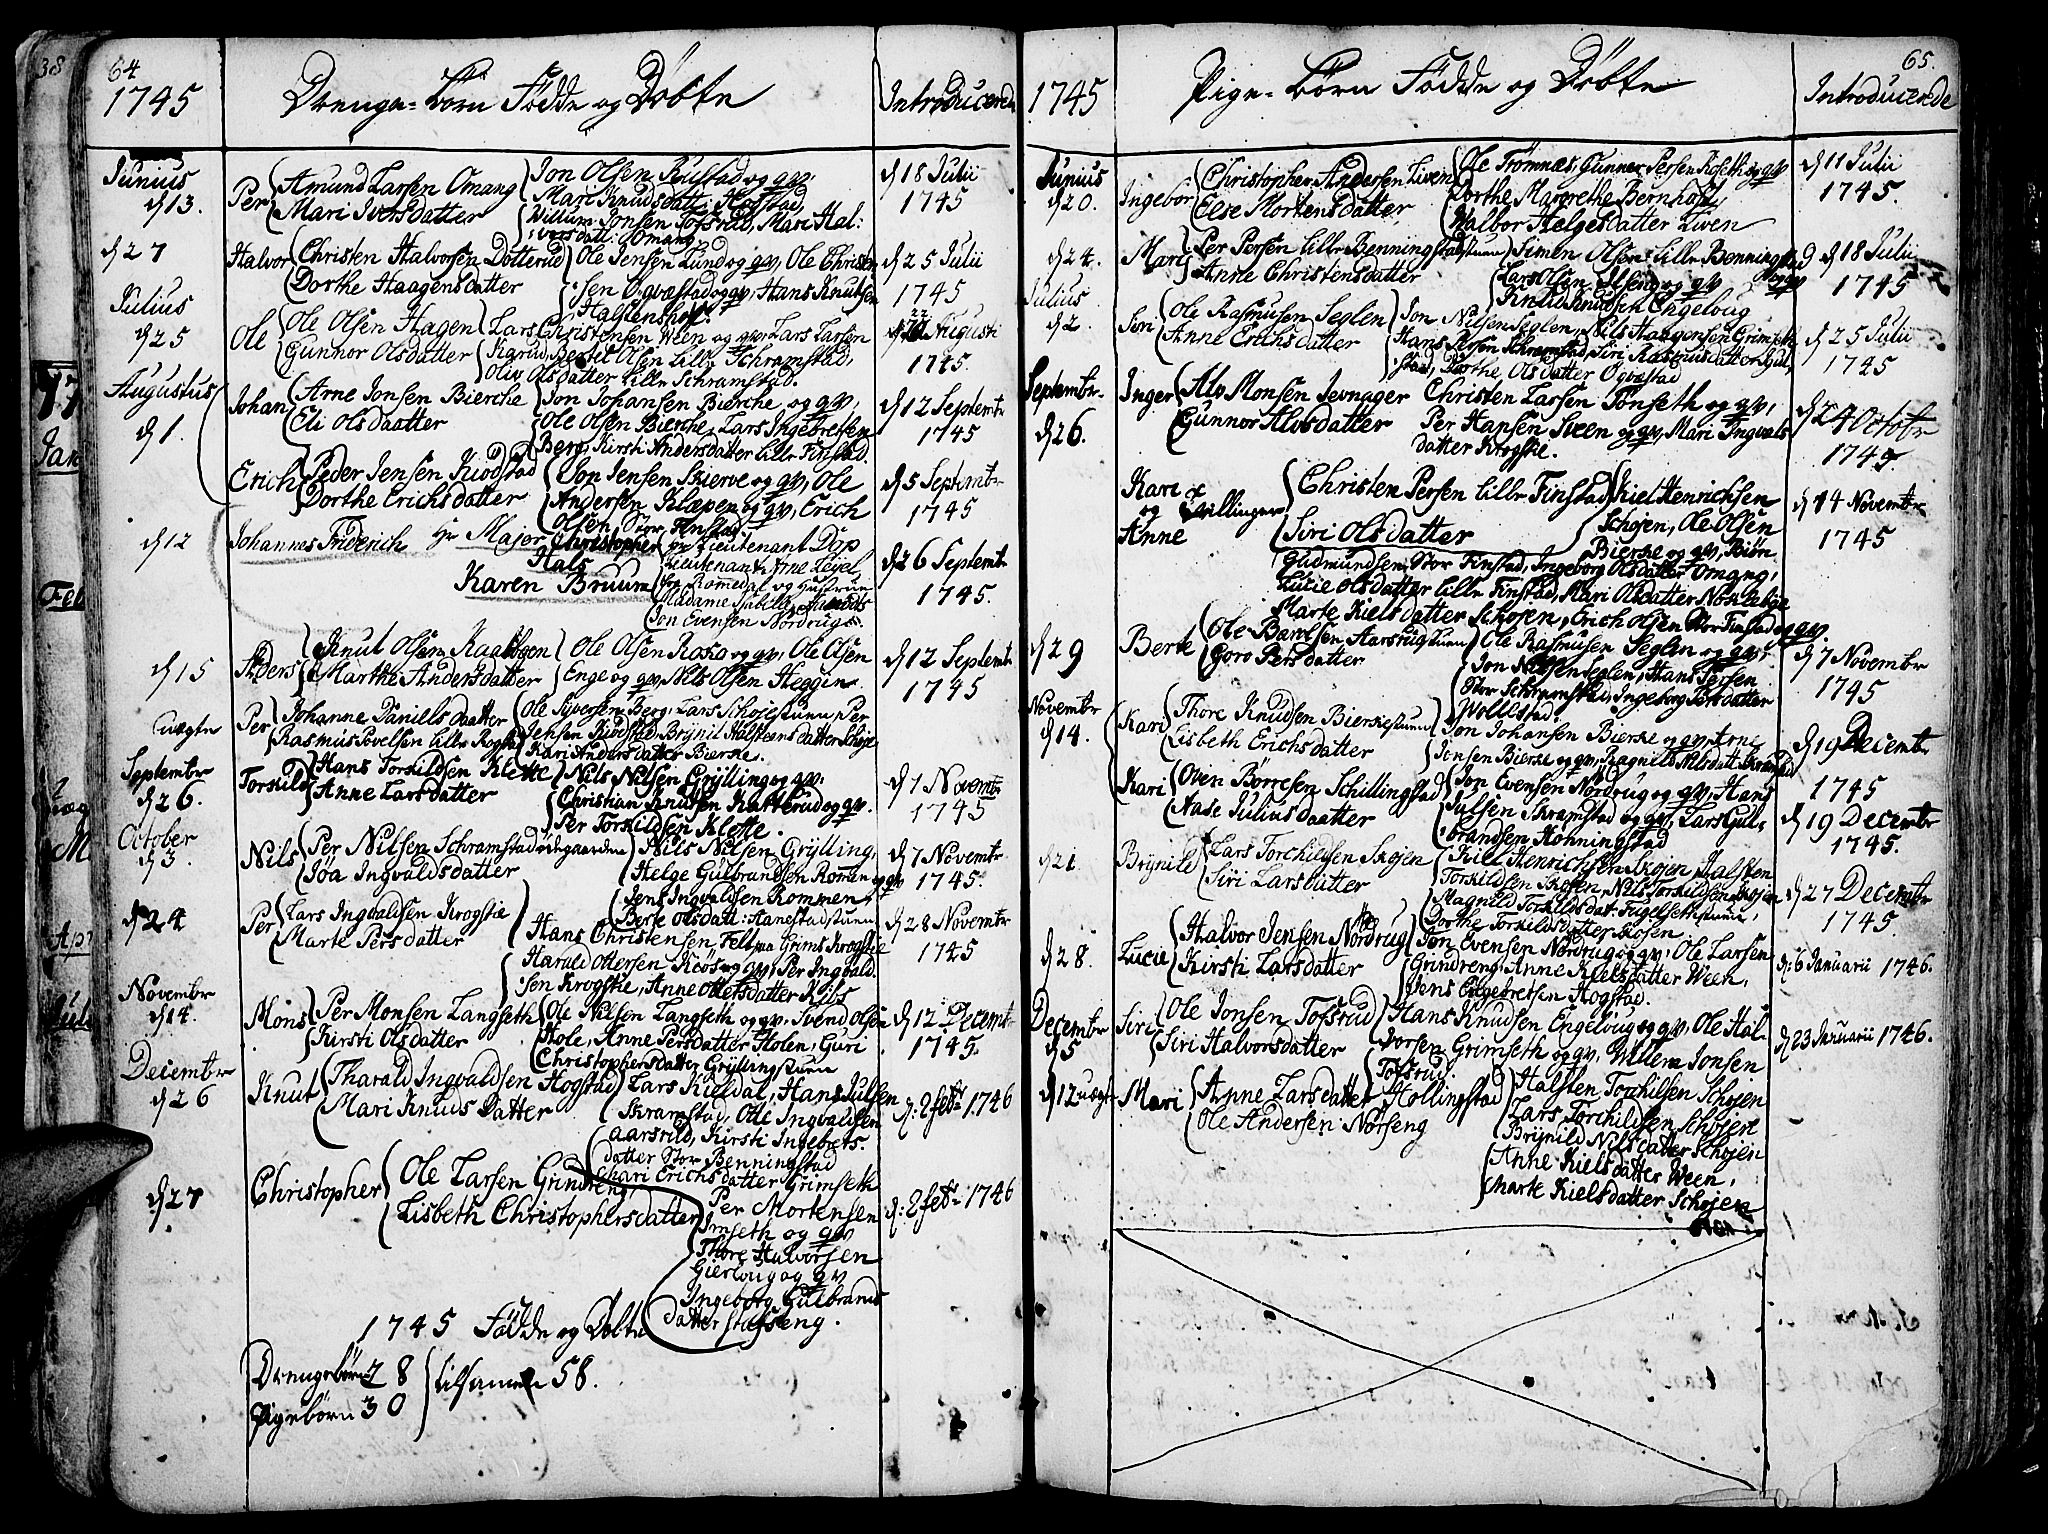 64
1745
Drenge-Børn Fødde og Døbte
Introducerede
Junius
d 13.
Per
Amund Larsen Omang
Mari Iversdatter
Jon Olsen Rustad og qv:
Mari Knudsdatt: Hogstad,
Willum Jonsen Tofsrud, Mari Hal:
:vorsdatt: Omang
d 18 Julii
1745
d 27
Halvor
Christen Halvorsen Dotterud
Dorthe Haagensdatter
Ole Jensen Lund og qv, Ole Christen
:sen Ogvæstad og qv, Hans Knutsen
Halstenshof.
d 25 Julii
1745
Julius
d 25
Ole
Ole Olsen Hagen
Gunnor Olsdatter
Lars Christensen Ween og qv, Lars Larsen
Karud, Bertil Olsen Lille Schramstad,
Oliv Olsdatter Lille Schramstad.
22 Augusti
1745.
Augustus
d 1.
Johan
Arne Jonsen Bierche
Eli Olsdaatter
Jon Johansen Bierche og qv,
Ole Olsen Bierche, Lars Ingebretsen
Berg, Kirsti Andersdatter Lille Finstad.
d 12 Septembr
1745
Erich
Peder Jensen Kiodstad
Dorthe Erichsdatter
Jon Jensen Skierve og qv, Ole
Andersen Klæpen og qv, Erich
Olsen Stor Finstad
d 5 Septembr
1745
d 12
Johannes Friderich
Hr Major Christopher
Hals
Karen Bruum
Hr Lieutenant Dop
Lieutenant Arne Leyel
fra Romedal og Hustrue
Madame Isabella
Jon Evensen Nordrug.
d 26 Septembr
1745.
d 15
Anders
Knut Olsen Kaatorpen
Marthe Andersdatter
Ole Olsen Rosko og qv, Ole Olsen
Enge og qv, Nils Olsen Heggen
d 12 Septembr
1745
uægte
Per
Johanne Daniells daatter
Rasmus Povelsen Lille Rogstad
Ole Syversen Berg, Lars Schojestuen, Per
Jensen Kiodstad, Brynil Halstensdatter Schoje
Kari Andersdatter Bierke.
Septembr
d 26.
Torkild
Hans Torkildsen Klette
Anne Larsdatter
Nils Nilsen Grylling og qv:
Christian Knudsen Katterud og qv.
Per Torkildsen Klette.
d 7 Novembr
1745
October
d 3.
Nils
Per Nilsen Schramstadødegaarden
Joa Ingvaldsdatter
Nils Nilsen Grylling,
Helge Gulbrandsen Romen og qv
Jens Ingvaldsen Rommen,
Berte Olsdatt: Hanestadstuen
d 7 Novembr
1745.
d 24
Per
Lars Ingvaldsen Krogstie
Marte Persdatter
Hans Christensen, Felt paa Grims Krogstie
Harald Ottersen Kiøs og qv, Per Ingvald
sen Krogstie, Anne Ottersdatter Kiøs
d 28 Novembr
1745
Novembr
d 14.
Mons
Per Monsen Langseth
Kirsti Olsdatter
Ole Nilsen Langseth og qv, Svend Olsen
Hole, Anne Persdatter Holen, Guri
Christophersdatter Gryllingstuen
d 12 Decembr
1745.
Decembr
d 26
Knut
Tharald Ingvaldsen Hogstad
Mari Knuds Datter
Lars Kieldal, Hans Julsen
Skramstad, Ole Ingvaldsen
Aarsrud, Kirsti Ingebrets.
datter Stor Benningstad
Mari Erichsdatter Grimseth
d: 2 febr 1746
d 27
Christopher
Ole Larsen Grindreng
Lisbeth Christophersdatter
Per Mortensen
Imseth og qv
Thore Halvorsen
Gierloug og qv
Ingeborg Gulbrands
datter Stafseng.
d: 2 febr 1746
1745 Fødde og Døbte
Drengebørn 28
Pigebørn 30
tilsammen 58.
65.
1745
Pige-Børn Fødde og Døbte
Introducerede
Junius
d 20.
Ingebor
Christopher Andersen Liven
Else Mortensdatter
Ole Trømnæs, Gunner Persen Kiseth og qv
Dorthe Margrethe Bernhoft,
Walbor Helgesdatter Liven
d 11 Julii
1745.
d 24.
Mari
Per Persen Lille Benningstadstuen
Anne Christensdatter
Simen Olsen Lille Benningstad og qv
Lars Olsen Ilseng og qv
Knud Knudsen Engeloug
d 18 Julii
1745
Julius
d 2.
Siri
Ole Rasmusen Seglen
Anne Erichsdatter
Jon Nilsen Seglen, Nils Haagensen Grimseth
Hans Persen Schramstad, Siri Rasmusdatt: Ongul,
:stad, Dorthe Olsdatter Ogvæstad
d 25 Julii
1745
Septembr.
d 26.
Inger
Alv Monsen Jevnager
Gunnor Alvsdatter
Christen Larsen Tønseth og qv,
Per Hansen Sveen og qv, Mari Ingvals
datter Krogstie.
d 24 Octobr
1745.
Kari
og
Anne
Tvillinger
Christen Persen Lille Finstad
Siri Olsdatter
Kiel Henrichsen
Schojen, Ole Olsen
Bierke og qv, Biøn
Gudmundsen Stor Finstad, Ingeborg Olsdatter Omang,
Lucie Olsdatter Lille Finstad, Mari Olsdatter Nordhbye
Marte Kielsdatter Schojen, Erich Olsen Stor Finstad og qv.
d 14 Novembr
1745
d 29
Berte
Ole Bardsen Aarsrudstuen
Goro Persdatter
Ole Rasmusen Seglen og qv:
Jon Nilsen Seglen, Hans Persen
Stor Schramstad, Ingeborg Persdatter
Wollestad.
d 7 Novembr
1745
Novembr
d 14.
Kari
Thore Knudsen Bierkestuen
Lisbeth Erichsdatter
Jon Johansen Bierke og qv, Arne
Jensen Bierke og qv, Ragnild Nilsdatt. Skramstad
d 19 Decembr
1745
Kari
Oven Børresen Schillingstad
Aase Juliusdaatter
Jon Evensen Nordrug og qv, Hans
Julsen Skramstad og qv, Lars Gul,
:brandsen Honningstad
d 19 Decembr
1745.
d 21.
Brynild
Lars Torchildsen Skojen
Siri Larsdatter
Kiell Henrichsen Skojen, Halsten
Torkildsen Skojen, Nils Torkildsen Skojen
Magnild Torkildsdat: Fugelsethstuen,
Dorthe Torkildsdatter Skojen.
d 27 Decembr
1745.
d 28.
Lucie
Halvor Jensen Nordrug
Kirsti Larsdatter
Jon Evensen Nordrug og qv, Ole Larsen
Grindreng, Anne Kielsdatter Ween,
Jens Engebretsen Hogstad.
d: 6 Januarii 1746.
Decembr
d 5
Siri
Ole Jonsen Tofsrud
Siri Halvorsdatter
Hans Knudsen Engeloug og qv, Ole Hal-
vorsen Grimseth og qv, Willem Jonsen
Tofsrud.
d 23 Januarii 1746.
d 12 uægte
Mari
Anne Larsdatter Hollingstad
Ole Andersen Nørseng
Halsten Torchilsen Schojen
Lars Torchildsen Schojen
Brynild Nilsdatter Schojen
Anne Kielsdatter Ween,
Marte Kielsdatter Schojen